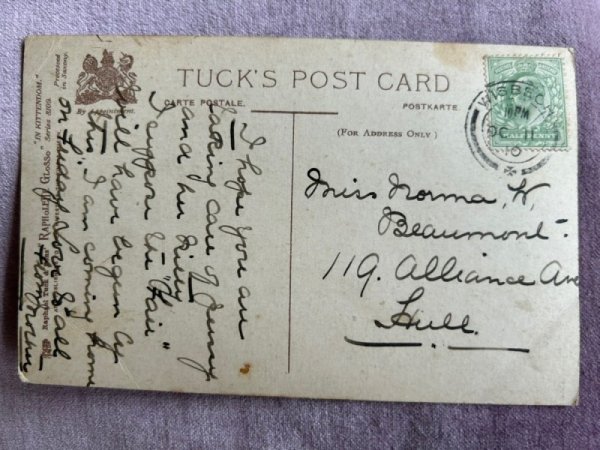 TUCK'S POST CARD
CARTE POSTALE.
POSTKARTE.
By Appointment.
(FOR ADDRESS ONLY)
"IN KITTENDOM."
Series 8009.
Processed in Saxony.
RAPHOTYPE GLOSSO
Raphael Tuck &
WISBECH
PM
OC
10
HALFPENNY
Miss Norma W.
Beaumont.
119. Alliance Ave
Hull.
I hope you are
taking care of Jenny
and her Kitty
I suppose the "Fair"
will have begun by
this. I am coming home
on Friday. Love to all
from Mother